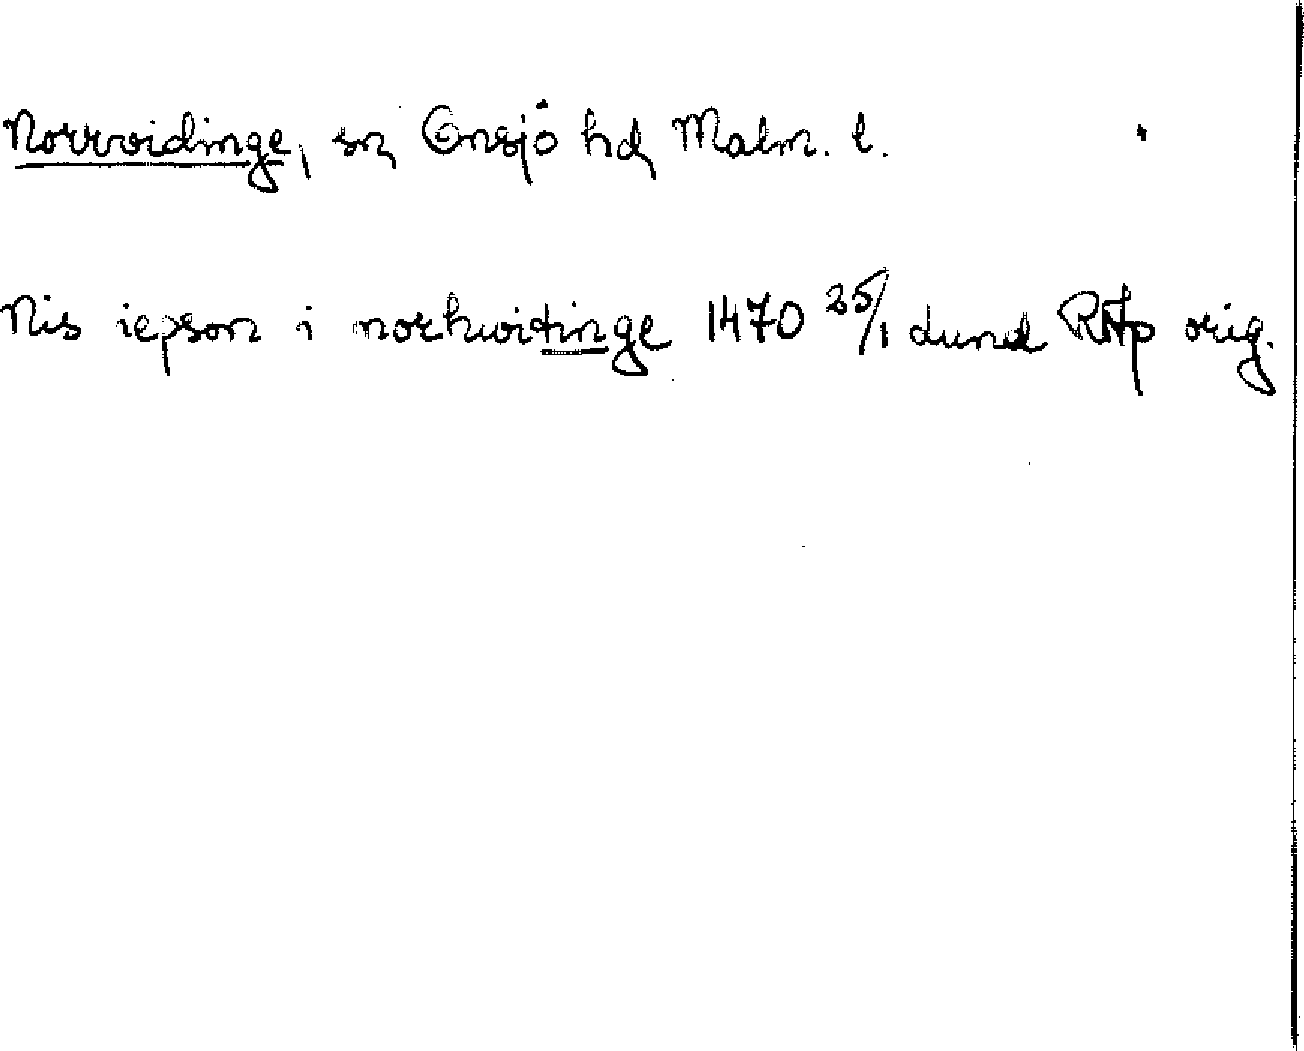 Norrvidinge, sn, Onsjö hd, Malm. l.
Nis iepson i norhwitinge 1470 25/1 Lund RAp orig.